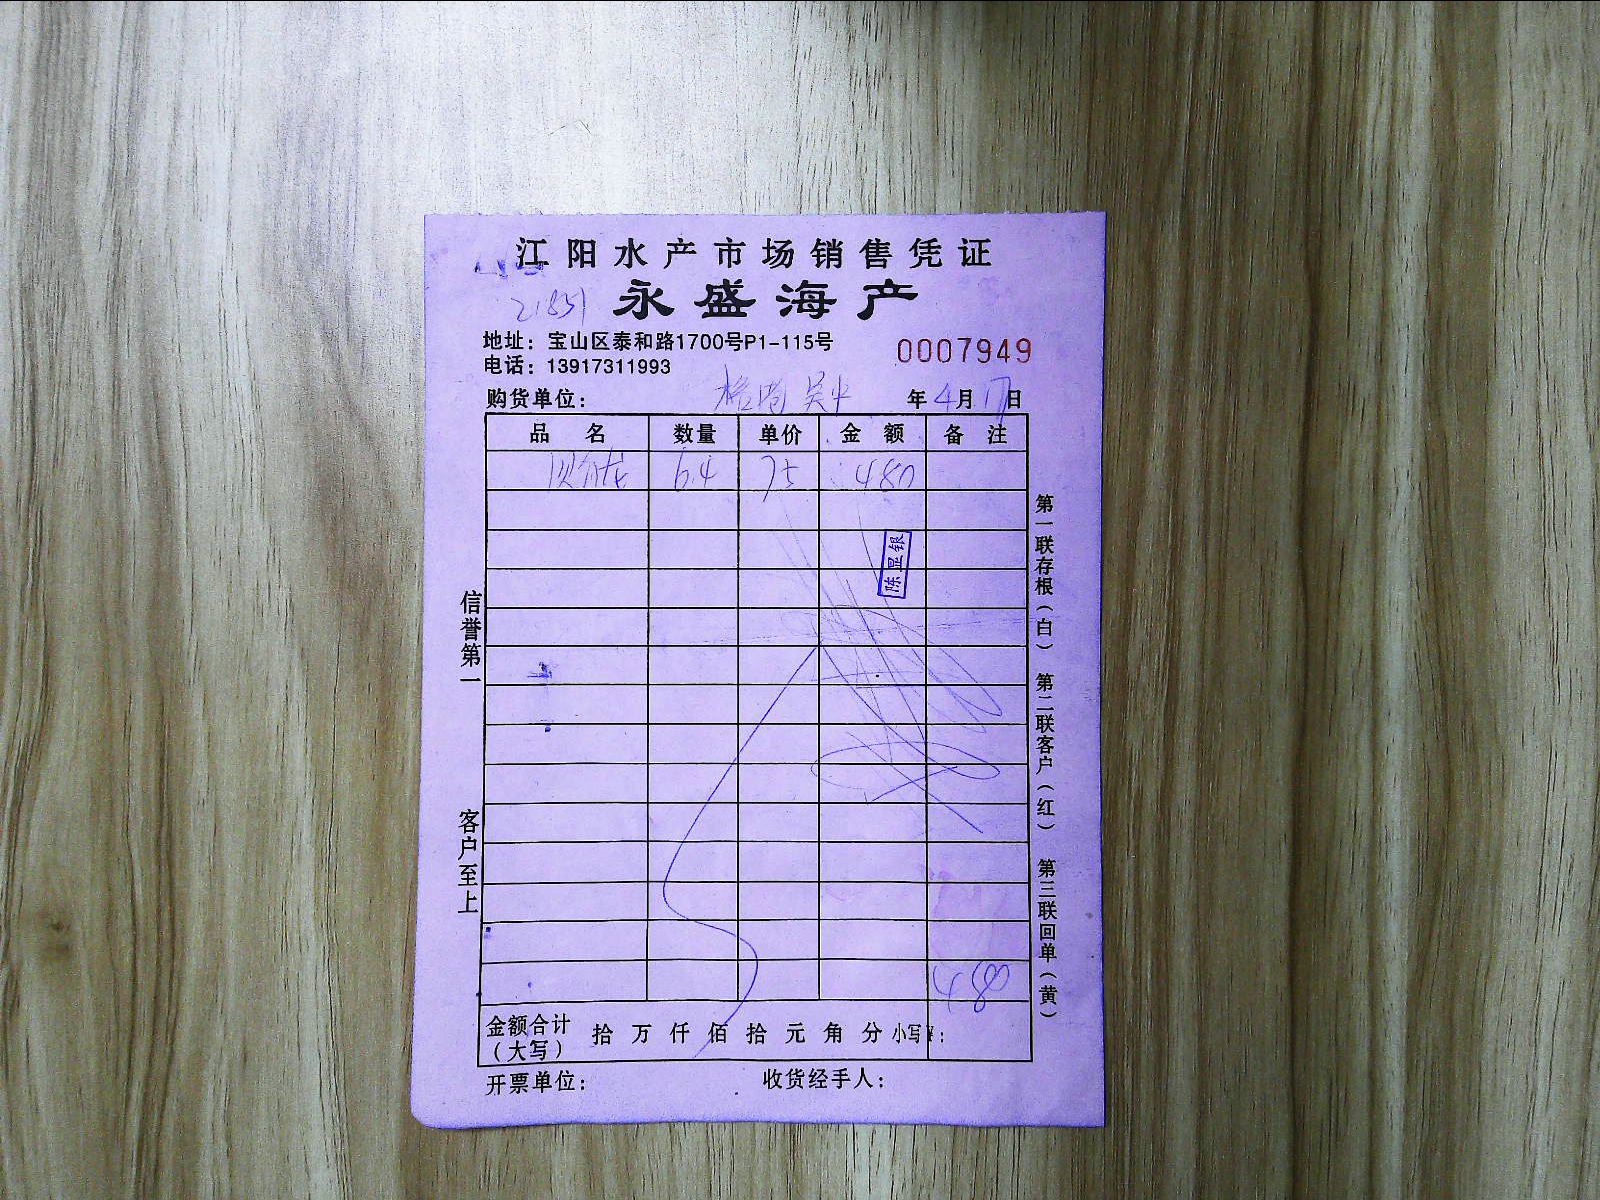 江阳水产市场销售凭证
21851 永盛海产
地址：宝山区泰和路1700号P1-115号
电话：13917311993
0007949
购货单位： 年4月17日
品名 数量 单价 金额 备注
6.4 75 480
陈显银
信誉第一
客户至上
第一联存根（白） 第二联客户（红） 第三联回单（黄）
480
金额合计（大写） 拾万仟佰拾元角分 小写¥：
开票单位： 收货经手人：